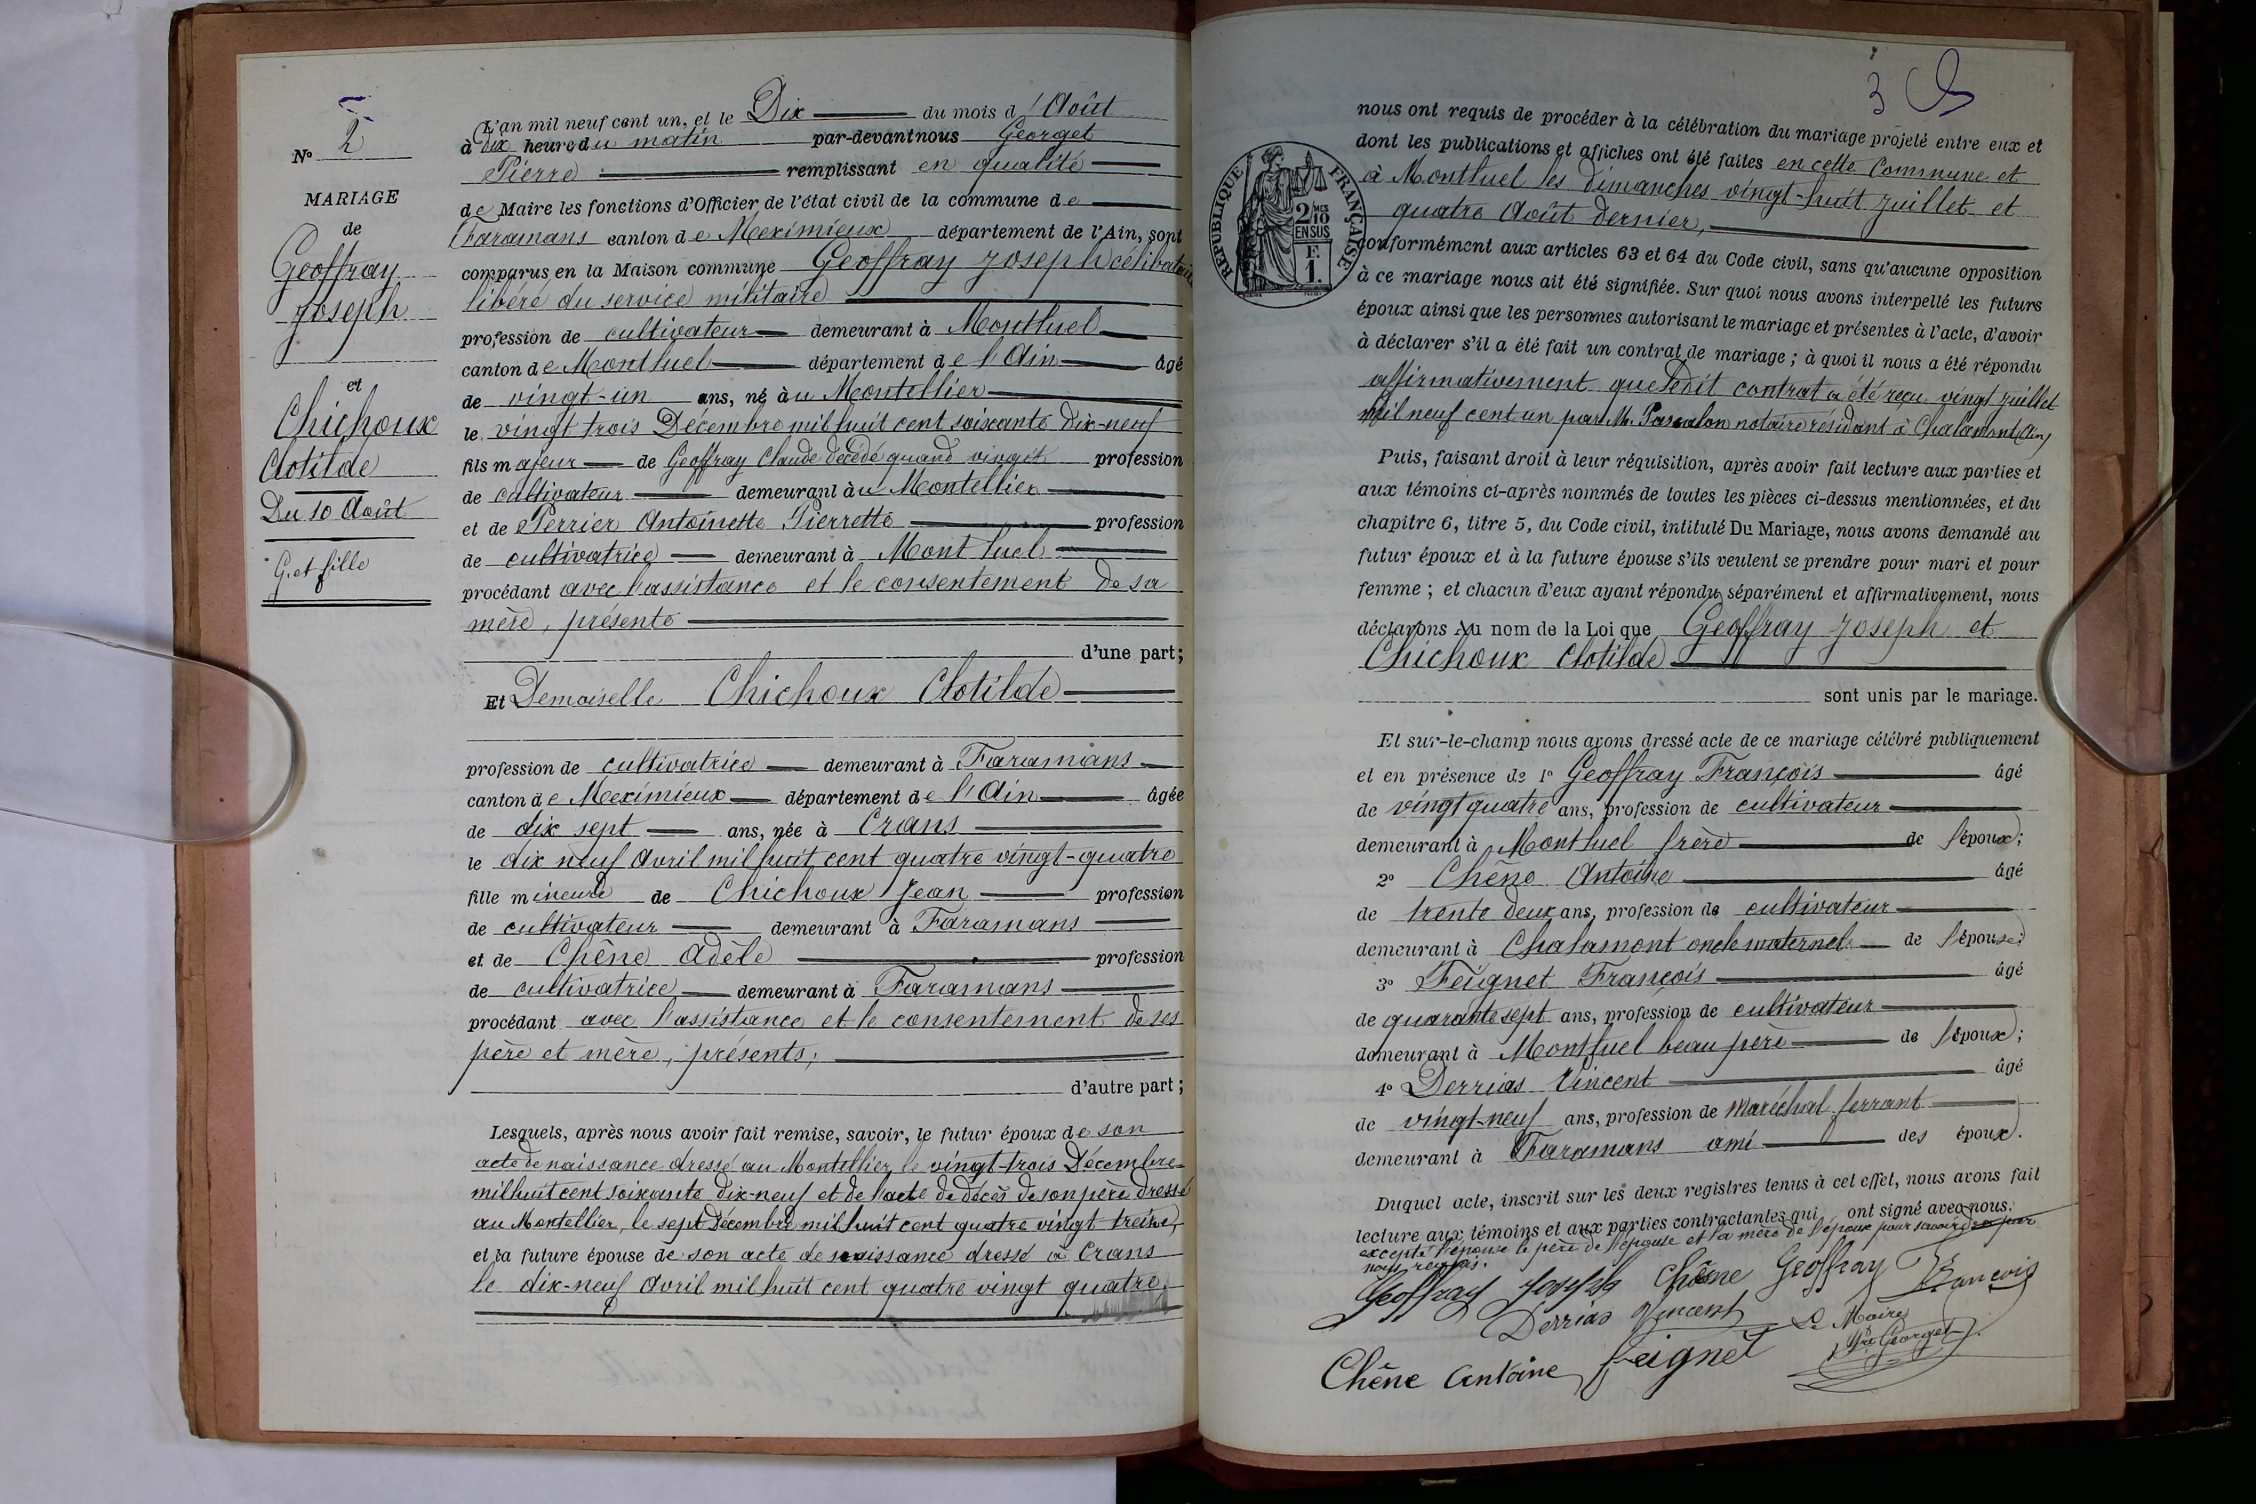 N° 2
MARIAGE
de
Geoffray
Joseph
et
Chichoux
Clotilde
Du 10 Août
G. et fille
L'an mil neuf cent un, et le Dix du mois d'Août
à dix heure du matin par-devant nous Georget
Pierre remplissant en qualité
de Maire les fonctions d'Officier de l'état civil de la commune de
Faramans canton de Meximieux département de l'Ain, sont
comparus en la Maison commune Geoffray Joseph célibataire
libéré du service militaire
profession de cultivateur demeurant à Montluel
canton de Montluel département de l'Ain âgé
de vingt-un ans, né au Montellier
le vingt trois Décembre mil huit cent soixante Dix-neuf
fils majeur de Geoffray Claude décédé quand vivait profession
de cultivateur demeurant au Montellier
et de Perrier Antoinette Pierrette profession
de cultivatrice demeurant à Montluel
procédant avec l'assistance et le consentement de sa
mère, présente
d'une part;
Et Demoiselle Chichoux Clotilde
profession de cultivatrice demeurant à Faramans
canton de Meximieux département de l'Ain âgée
de dix sept ans, née à Crans
le dix neuf Avril mil huit cent quatre vingt-quatre
fille mineure de Chichoux Jean profession
de cultivateur demeurant à Faramans
et de Chêne Adèle profession
de cultivatrice demeurant à Faramans
procédant avec l'assistance et le consentement de ses
père et mère, présents,
d'autre part;
Lesquels, après nous avoir fait remise, savoir, le futur époux de son
acte de naissance dressé au Montellier le vingt-trois Décembre
mil huit cent soixante dix-neuf et de l'acte de décès de son père dressé
au Montellier, le sept Décembre mil huit cent quatre vingt treize,
et la future épouse de son acte de naissance dressé à Crans
le dix-neuf Avril mil huit cent quatre vingt quatre.
3
RÉPUBLIQUE FRANÇAISE
2/10 MES
EN SUS
F.
1.
nous ont requis de procéder à la célébration du mariage projeté entre eux et
dont les publications et affiches ont été faites en cette Commune et
à Montluel les dimanches vingt-huit Juillet et
quatre Août dernier,
conformément aux articles 63 et 64 du Code civil, sans qu'aucune opposition
à ce mariage nous ait été signifiée. Sur quoi nous avons interpellé les futurs
époux ainsi que les personnes autorisant le mariage et présentes à l'acte, d'avoir
à déclarer s'il a été fait un contrat de mariage; à quoi il nous a été répondu
affirmativement que ledit contrat a été reçu vingt juillet
mil neuf cent un par M. notaire résidant à Chalamont (Ain)
Puis, faisant droit à leur réquisition, après avoir fait lecture aux parties et
aux témoins ci-après nommés de toutes les pièces ci-dessus mentionnées, et du
chapitre 6, titre 5, du Code civil, intitulé Du Mariage, nous avons demandé au
futur époux et à la future épouse s'ils veulent se prendre pour mari et pour
femme; et chacun d'eux ayant répondu séparément et affirmativement, nous
déclarons Au nom de la Loi que Geoffray Joseph et
Chichoux Clotilde
sont unis par le mariage.
Et sur-le-champ nous avons dressé acte de ce mariage célébré publiquement
et en présence de 1° Geoffray François âgé
de vingt quatre ans, profession de cultivateur
demeurant à Montluel frère de l'époux;
2° Chêne Antoine âgé
de trente deux ans, profession de cultivateur
demeurant à Chalamont oncle maternel de l'épouse;
3° Feignet François âgé
de quarante sept ans, profession de cultivateur
demeurant à Montluel beau père de l'époux;
4° Derrias Vincent âgé
de vingt-neuf ans, profession de Maréchal ferrant
demeurant à Faramans ami des époux.
Duquel acte, inscrit sur les deux registres tenus à cet effet, nous avons fait
lecture aux témoins et aux parties contractantes qui ont signé avec nous.
excepté l'épouse le père de l'épouse et la mère de l'époux pour
nous requis.
Geoffray Joseph Chêne Geoffray François
Derrias Vincent Le Maire
Chêne Antoine feignet Pre Georget